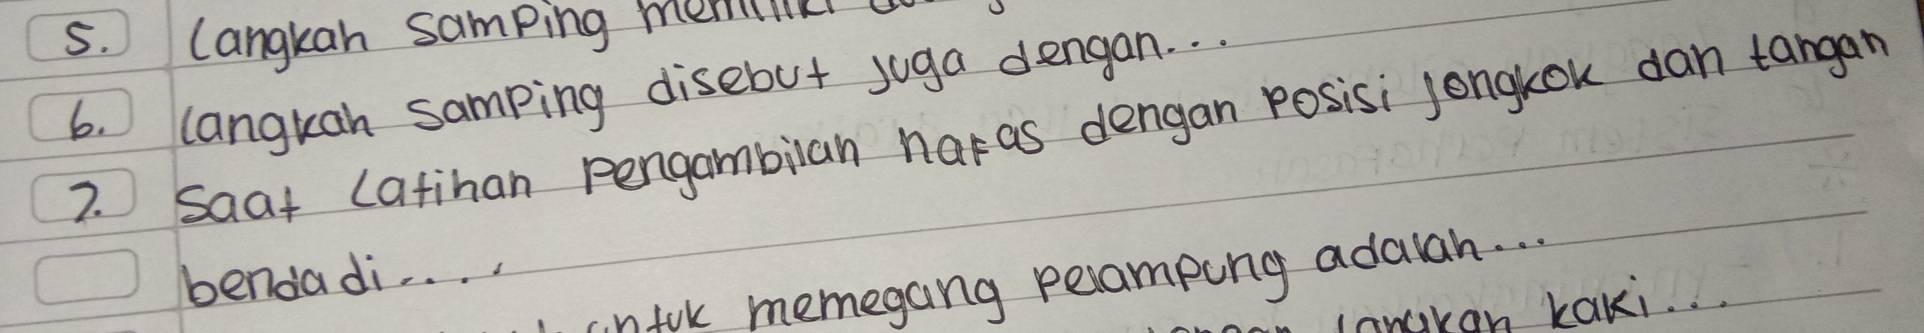 5. Langkah samping memiliki
6. Langkah samping disebut juga dengan...
7. Saat Latihan pengambilan nafas dengan posisi jongkok dan tangan
benda di....
untuk memegang pelampung adalah...
langkah kaki...